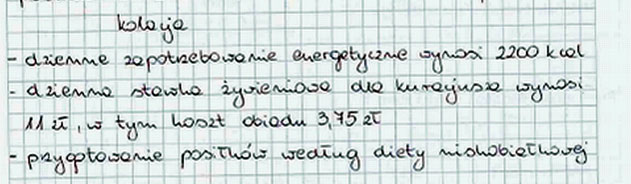 kolacja
- dzienne zapotrzebowanie energetyczne wynosi 2200 kcal
- dzienna stawka żywieniowa dla kuracjusza wynosi
11 zł, w tym koszt obiadu 3,75 zł
- przygotowanie posiłków według diety niskobiałkowej